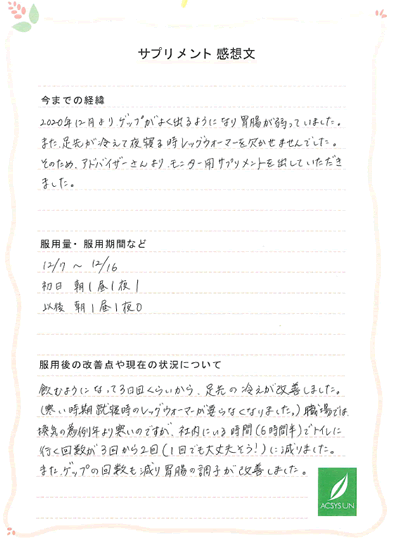 サプリメント 感想文
今までの経緯
2020年12月よりゲップがよく出るようになり胃腸が弱っていました。
また、足先が冷えて夜寝る時レッグウォーマーを欠かせませんでした。
そのため、アドバイザーさんより、モニター用サプリメントを出していただき
ました。
服用量・服用期間など
12/7 ～ 12/16
初日 朝1昼1夜1
以後 朝1昼1夜0
服用後の改善点や現在の状況について
飲むようになって3日目くらいから、足先の冷えが改善しました。
(寒い時期就寝時のレッグウォーマーが要らなくなりました。)職場では
換気の為例年より寒いのですが、社内にいる時間(6時間半)でトイレに
行く回数が3回から2回(1回でも大丈夫そう!)に減りました。
また、ゲップの回数も減り胃腸の調子が改善しました。
ACSYS LIN